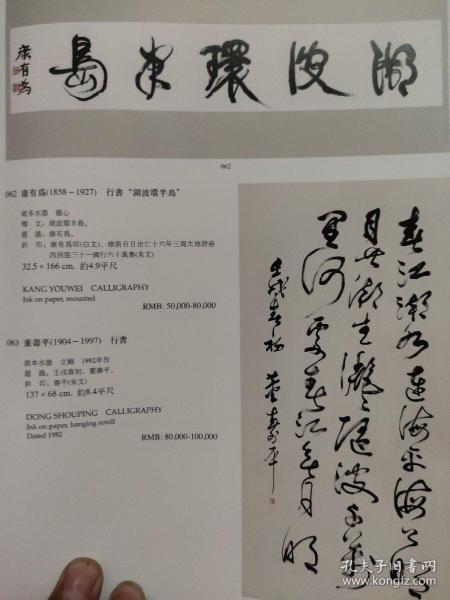 湖波環半島
康有為
062
062 康有爲(1858－1927) 行書“湖波環半島”
紙本水墨 鏡心
釋 文：湖波環半島。
題 識：康有爲。
鈐 印：康有爲印(白文)、維新百日出亡十六年三周大地游遍
四洲經三十一國行六十萬里(朱文)
32.5 × 166 cm. 約4.9平尺
KANG YOUWEI CALLIGRAPHY
Ink on paper, mounted
RMB: 50,000-80,000
063 董壽平(1904－1997) 行書
紙本水墨 立軸 1982年作
題 識：壬戌春初，董壽平。
鈐 印：壽平(朱文)
137 × 68 cm. 約8.4平尺
DONG SHOUPING CALLIGRAPHY
Ink on paper, hanging scroll
Dated 1982
RMB: 80,000-100,000
春江潮水連海平海上明
月共潮生灩灩隨波千萬
里何處春江無月明
壬戌春初 董壽平
孔夫子旧书网
www.kongfz.com